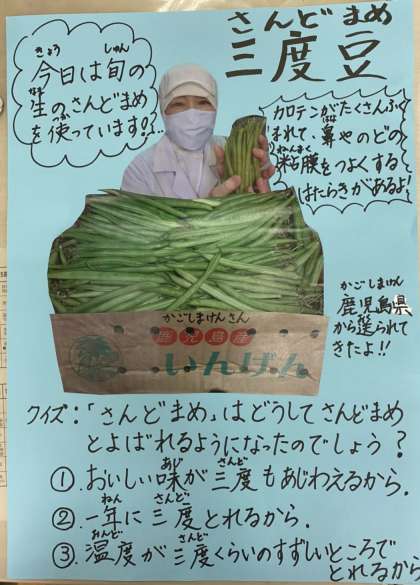 さんどまめ
三度豆
きょう しゅん
今日は旬の
なま
生のさんどまめ
つか
を使っています!!
カロテンがたくさんふく
はな
まれて、鼻やのどの
ねんまく
粘膜をつよくする
はたらきがあるよ!
かごしまけん
鹿児島県
おく
から送られて
きたよ!!
かごしまけんさん
鹿児島産
いんげん
クイズ:「さんどまめ」はどうしてさんどまめ
とよばれるようになったのでしょう?
あじ さんど
①.おいしい味が三度もあじわえるから.
ねん さんど
②.一年に三度とれるから.
おんど さんど
③.温度が三度くらいのすずしいところで
とれるから